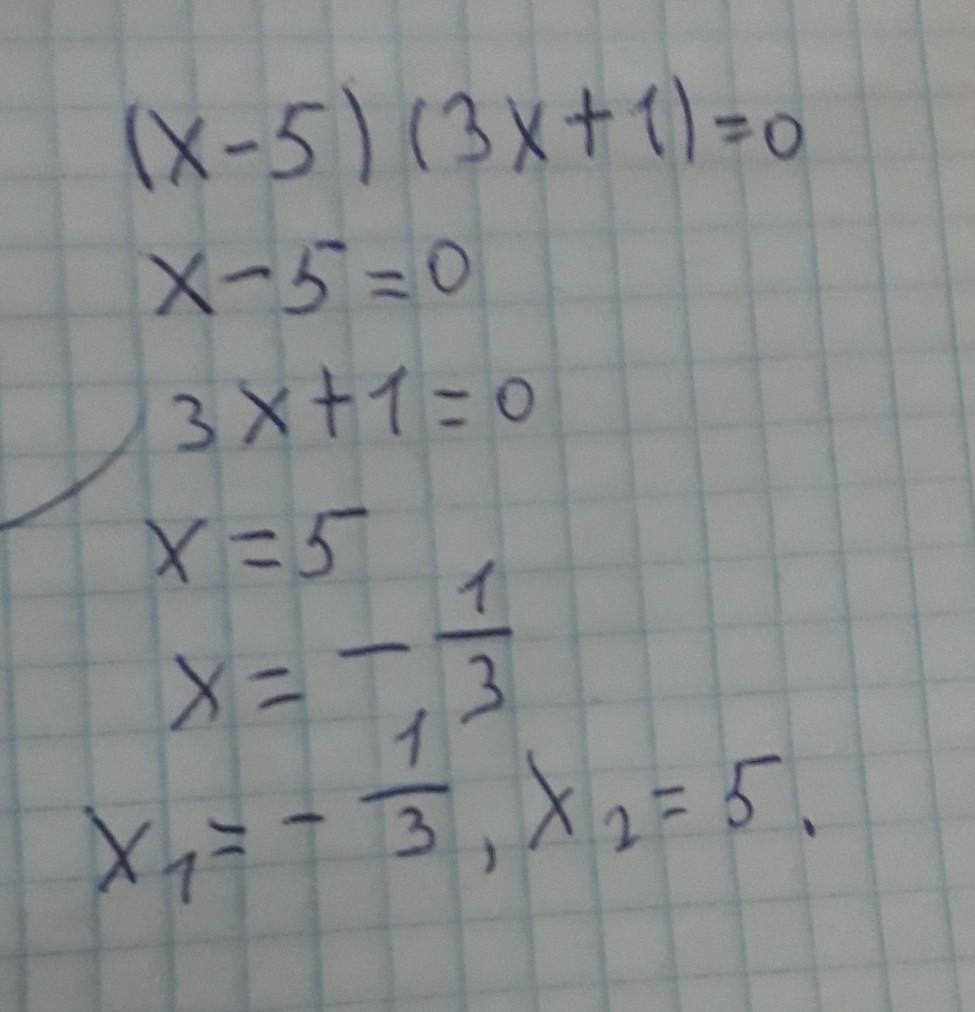 (x-5)(3x+1)=0
x-5=0
3x+1=0
x=5
x=-1/3
x₁=-1/3, x₂=5.